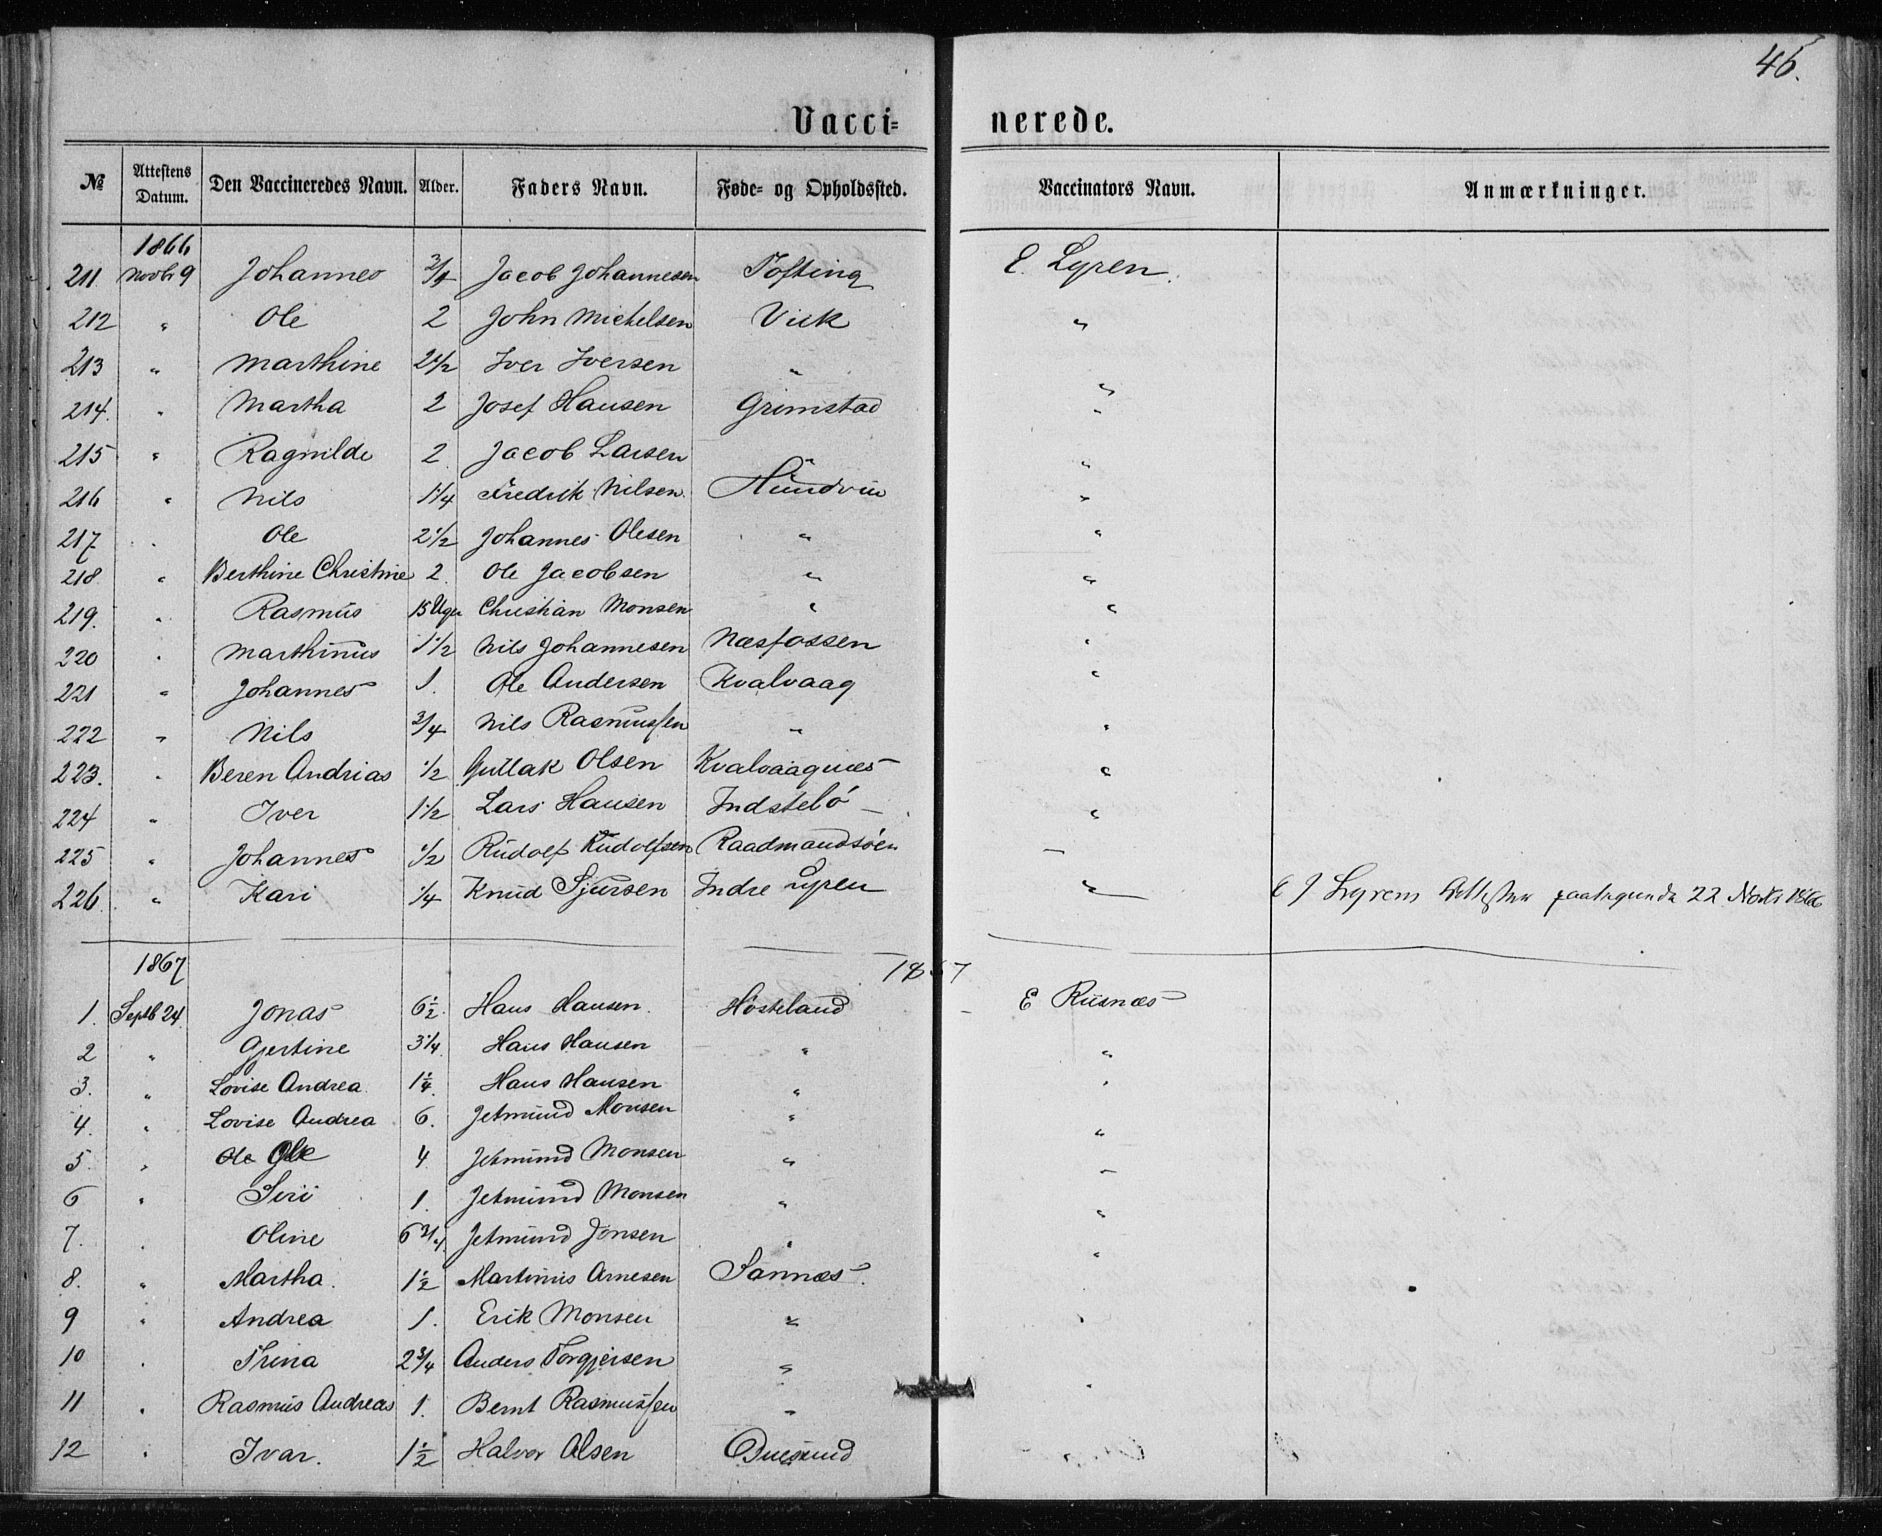 46.
Vacci= nerede.
№ Attestens Datum. Den Vaccineredes Navn. Alder. Faders Navn. Føde= og Opholdssted. Vaccinators Navn. Anmærkninger.
1866
211. Novbr 9 Johannes 3/4 Jacob Johannesen Tofting E. Lyren.
212 " Ole 2 John Michelsen Viik "
213 " Marthine 2 1/2 Iver Iversen " "
214. " Martha 2 Josef Hansen Grimstad "
215 " Ragnilde 2 Jacob Larsen " "
216 " Nils 1 1/4 Fredrik Nilsen Hundvin "
217 " Ole 2 1/2 Johannes Olesen " "
218 " Berthine Christine 2. Ole Jacobsen " "
219. " Rasmus 15 Uger Christian Monsen " "
220 " Marthinus 1 1/2 Nils Johannesen Næsfossen "
221 " Johannes 1. Ole Andersen Kvalvaag "
222 " Nils 3/4 Nils Rasmussen " "
223. " Beren Andrias 1/2 Gullak Olsen Kvalvaagnæs "
224 " Iver 1 1/2 Lars Hansen Indstebö "
225 " Johannes 1/2 Rudolf Rudolfsen Raadmandsöen "
226 " Kari 1/4 Knud Sjursen Indre Lyren " E J Lyrens Attester 22 Novbr 1866
1867 1867
1. Septb 24 Jonas 6 1/2 Hans Hansen. Hosteland E Riisnæs
2 " Gjertine 3 1/4 Hans Hansen " "
3. " Lovise Andrea 1 1/4 Hans Hansen " "
4. " Lovise Andrea 6. Jetmund Monsen " "
5. " Ole Ole 4 Jetmund Monsen " "
6 " Siri 1. Jetmund Monsen " "
7. " Oline 6 3/4 Jetmund Jonsen " "
8. " Martha. 1 1/2 Martinus Arnesen Sannæs.
9 " Andrea 1. Erik Monsen " "
10 " Trina 2 3/4 Anders Torgjersen "
11 " Rasmus Andreas 1. Bernt Rasmussen " "
12 " Ivar. 1 1/2 Halvor Olsen Duesund